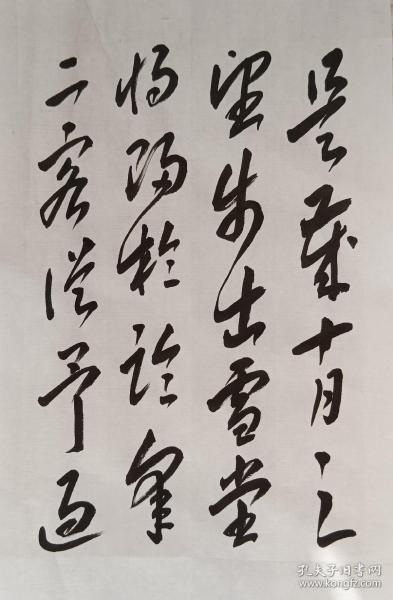 是歲十月之
望步出雪堂
將歸於臨皋
二客從予過
孔夫子旧书网
www.kongfz.com